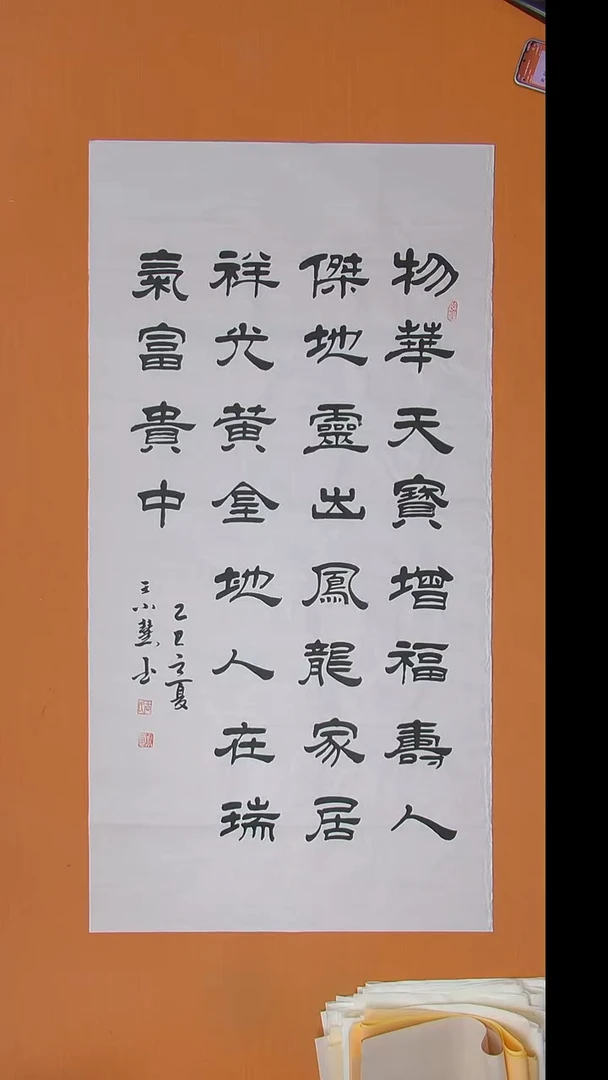 物華天寶增福壽人
傑地靈出鳳龍家居
祥光黃金地人在瑞
氣富貴中
乙巳立夏
王小慧书